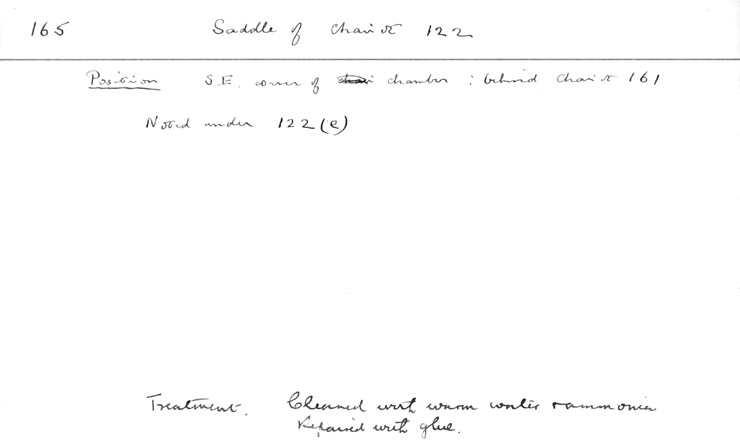 165 Saddle of Chariot 122
Position S.E. corner of chamber : behind Chariot 161
Noted under 122 (e)
Treatment. Cleaned with warm water + ammonia
Repaired with glue.